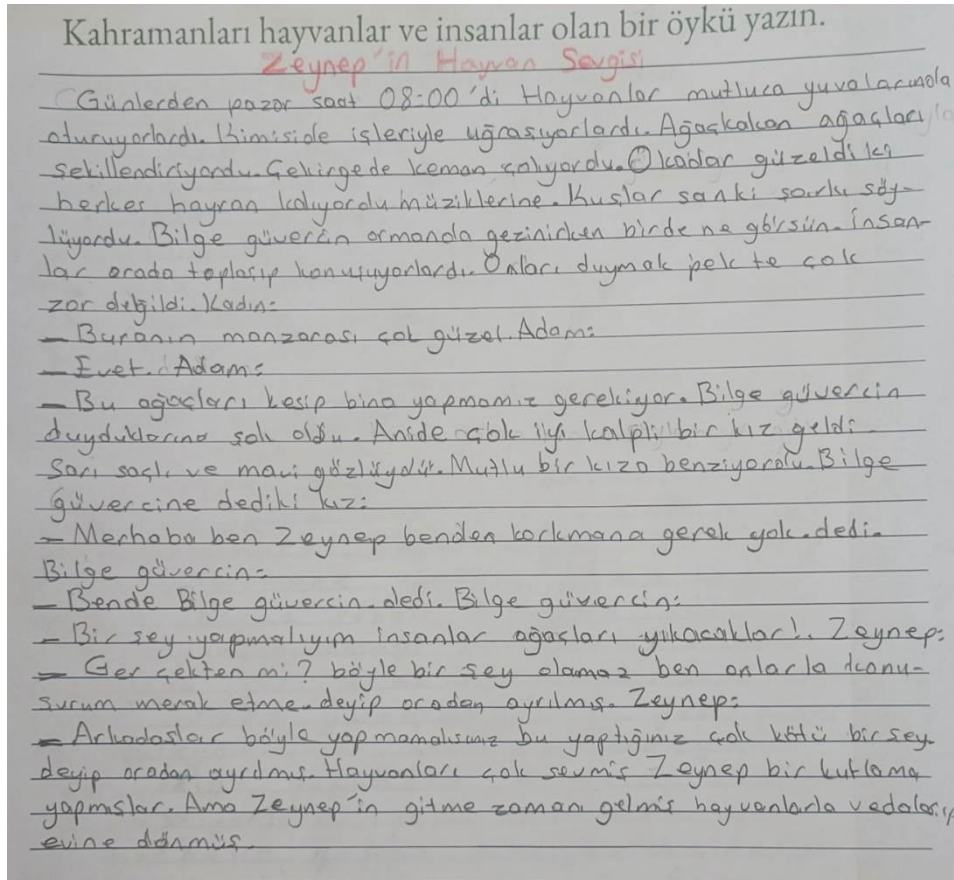 Kahramanları hayvanlar ve insanlar olan bir öykü yazın.
Zeynep'in Hayvan Sevgisi
Günlerden pazar saat 08:00'di Hayvanlar mutluca yuvalarında
oturuyorlardı. Kimiside işleriyle uğraşıyorlardı. Ağaçkakan ağaçları
şekillendiriyordu. Çekirgede keman çalıyordu. O kadar güzeldi ki
herkes hayran kalıyordu müziklerine. Kuşlar sanki şarkı söy-
lüyordu. Bilge güvercin ormanda gezinirken birde ne görsün. İnsan-
lar orada toplaşıp konuşuyorlardı. Onları duymak pek te çok
zor değildi. Kadın:
- Buranın manzarası çok güzel. Adam:
- Evet. Adam:
- Bu ağaçları kesip bina yapmamız gerekiyor. Bilge güvercin
duyduklarına şok oldu. Anide çok iyi kalpli bir kız geldi
Sarı saçlı ve mavi gözlüydü. Mutlu bir kıza benziyordu. Bilge
güvercine dediki kız:
- Merhaba ben Zeynep benden korkmana gerek yok. dedi.
Bilge güvercin:
- Bende Bilge güvercin. dedi. Bilge güvercin:
- Bir şey yapmalıyım insanlar ağaçları yıkacaklar!. Zeynep:
- Gerçekten mi? böyle bir sey olamaz ben onlarla konu-
surum merak etme. deyip oradan ayrılmış. Zeynep:
- Arkadaslar böyle yapmamalısınız bu yaptığınız çok kötü bir sey.
deyip oradan ayrılmış. Hayvanları çok sevmis Zeynep bir kutlama
yapmıslar. Ama Zeynep'in gitme zamanı gelmis hayvanlarla vedalaşıp
evine dönmüş.